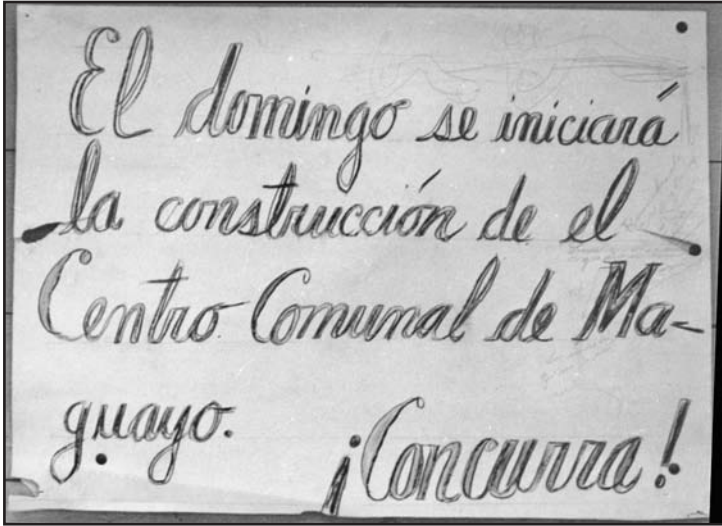 El domingo se iniciará
la construcción de el
Centro Comunal de Ma-
guayo. ¡Concurra!